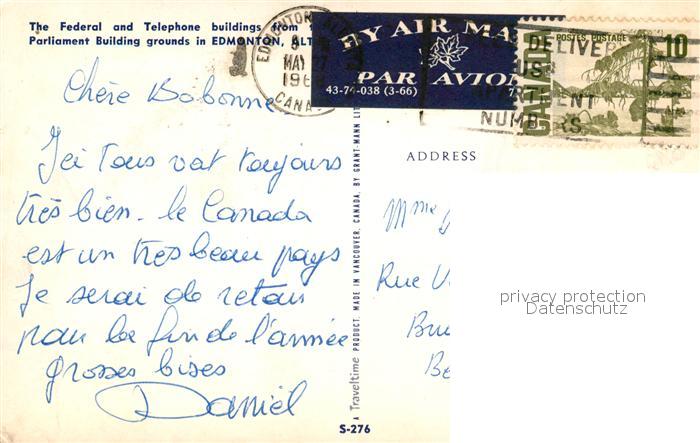 The Federal and Telephone buildings from
Parliament Building grounds in EDMONTON, ALT
EDMONTON
MAY
196
CANA
BY AIR MAIL
PAR AVION
43-74-038 (3-66)
POSTES POSTAGE
10
DELIVERY
USE
APARTMENT
NUMBERS
Chère Bobonne
Ici tous vat toujours
très bien. le Canada
est un très beau pays
Je serai de retour
pour la fin de l'année
grosses bises
Daniel
A Traveltime PRODUCT. MADE IN VANCOUVER, CANADA, BY GRANT-MANN LIT
S-276
ADDRESS
Mme
Rue
Bru
Be
privacy protection
Datenschutz